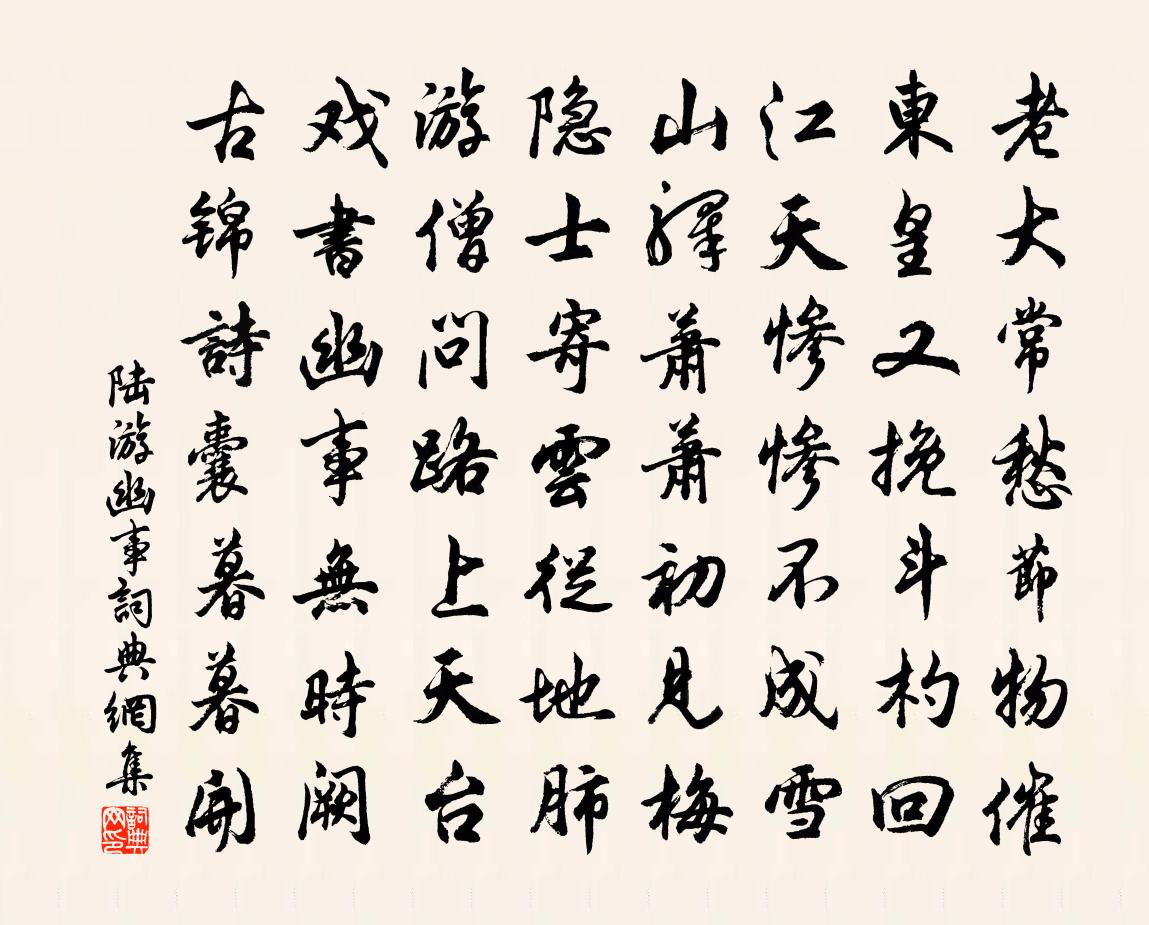 老大常愁節物催
東皇又挽斗杓回
江天惨惨不成雪
山驛蕭蕭初見梅
隐士寄雲從地肺
游僧問路上天台
戏書幽事無時闕
古锦詩囊暮暮開
陆游幽事詞典網集
詞典网印